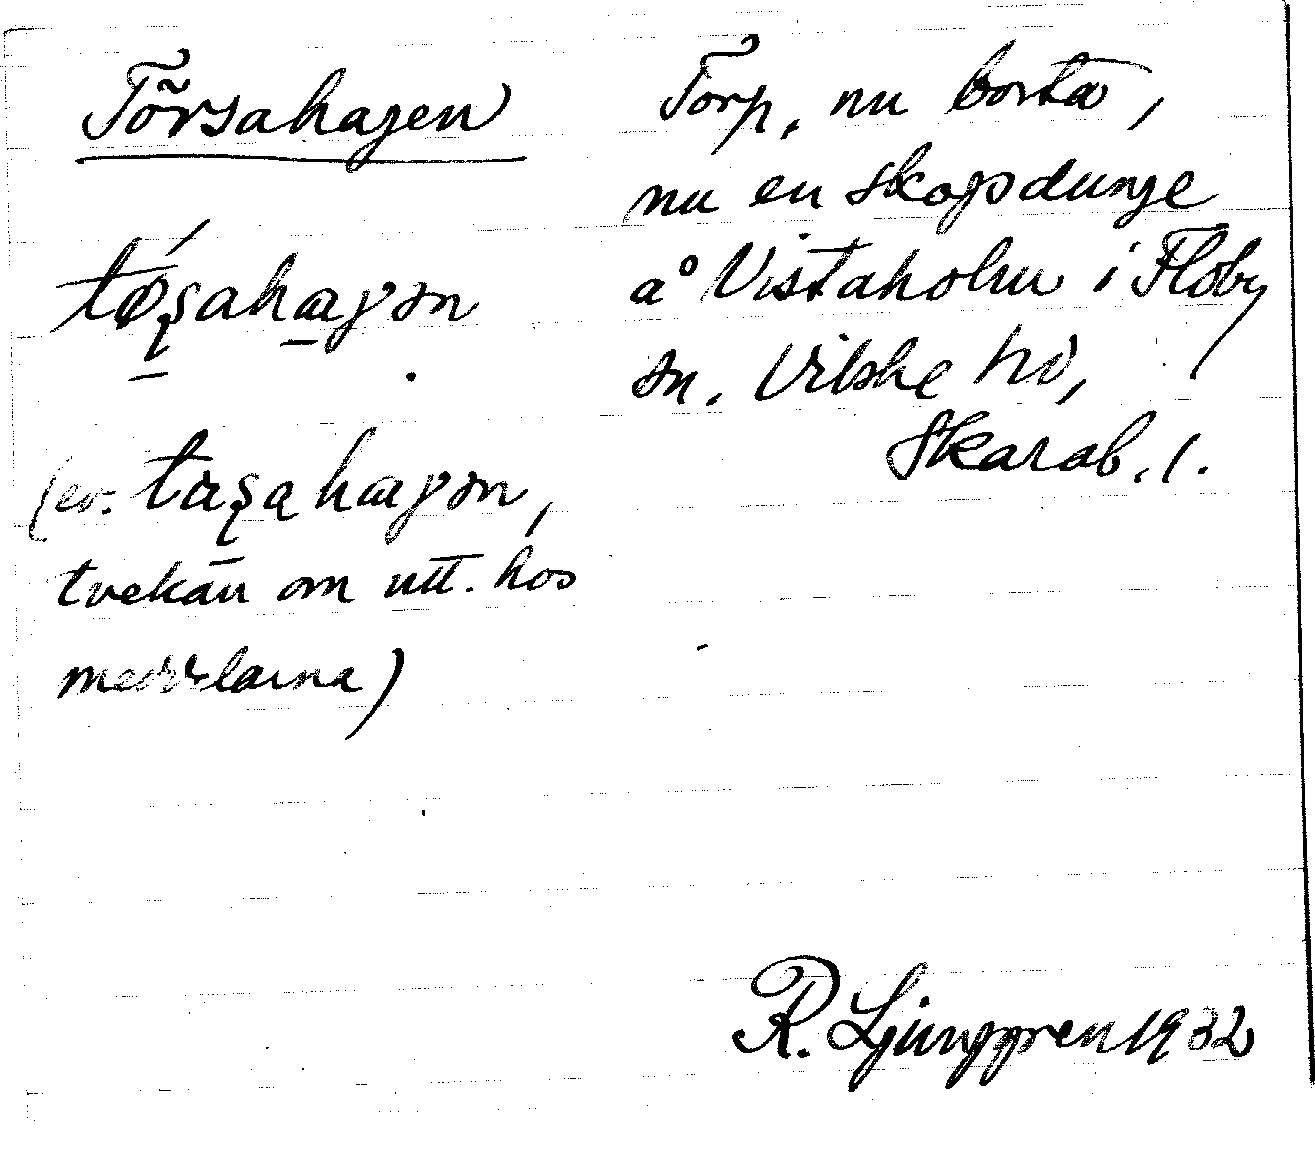 Törsahagen
tø̀ʂahaɡən
(ev. taʂahaɡən,
tvekan om utt. hos
meddelarna)
Torp, nu borta,
nu en skogsdunge
å Vistaholm i Floby
sn. Vilske hd,
Skarab. l.
R. Ljunggren 1932